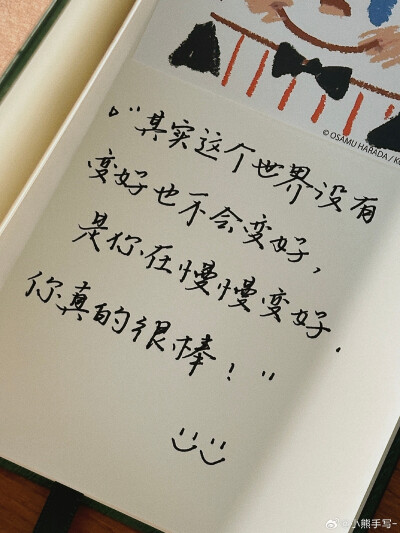 © OSAMU HARADA / K
“其实这个世界没有
变好也不会变好，
是你在慢慢变好．
你真的很棒！”
@小熊手写-